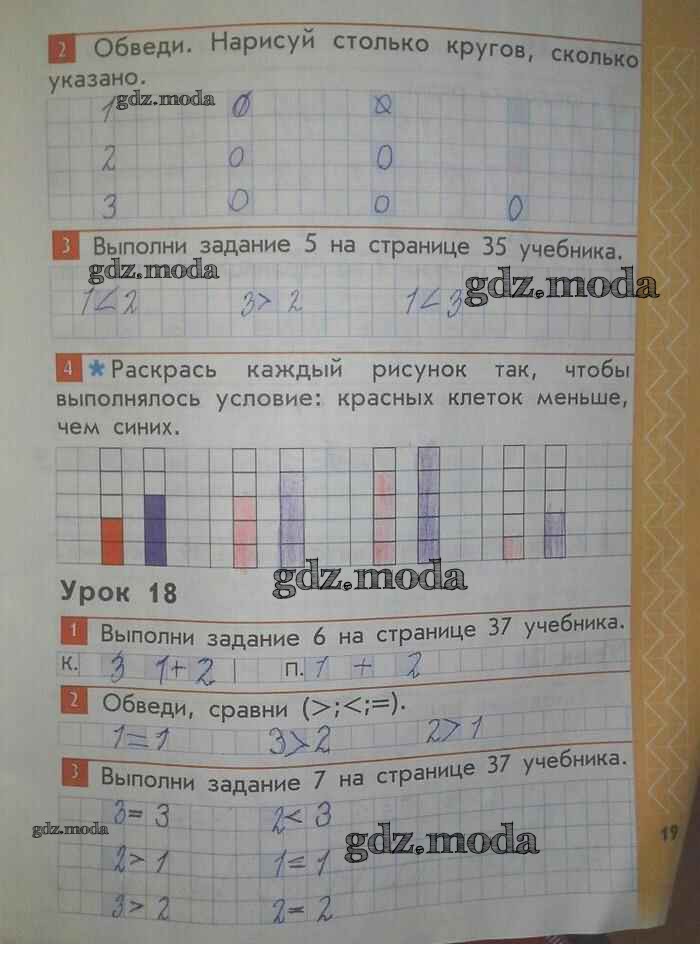 2 Обведи. Нарисуй столько кругов, сколько
указано.
gdz.moda
1 0 0
2 0 0
3 0 0 0
3 Выполни задание 5 на странице 35 учебника.
gdz.moda
gdz.moda
1<2 3>2 1<3
4 * Раскрась каждый рисунок так, чтобы
выполнялось условие: красных клеток меньше,
чем синих.
gdz.moda
Урок 18
1 Выполни задание 6 на странице 37 учебника.
К. 3 1+2 П. 1 + 2
2 Обведи, сравни (>;<;=).
1=1 3>2 2>1
3 Выполни задание 7 на странице 37 учебника.
3=3 2<3
gdz.moda
gdz.moda
19
2>1 1=1
3>2 2=2